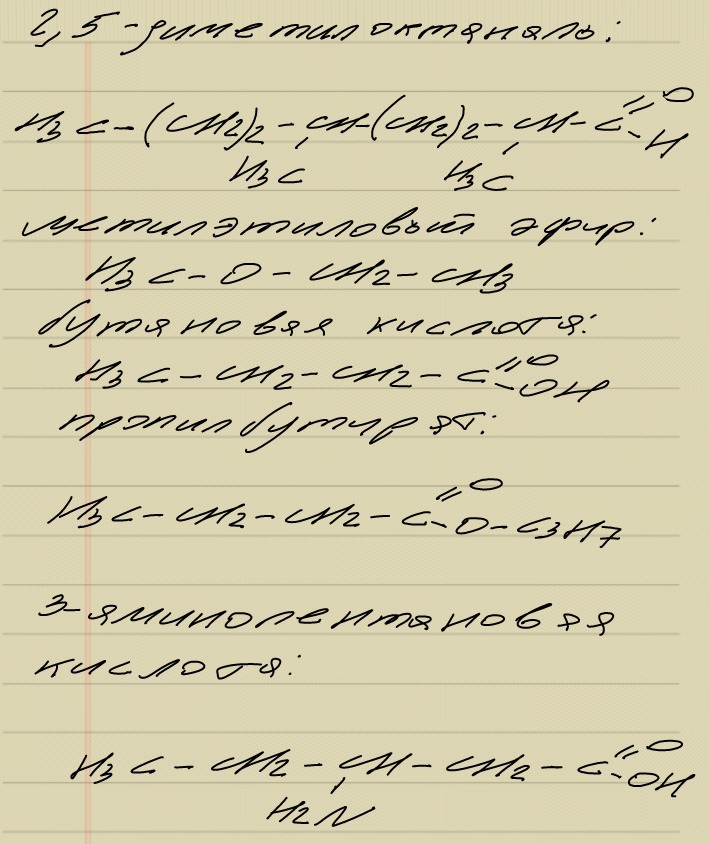 2,5-диметилоктаналь:
H3C-(CH2)2-CH-(CH2)2-CH-C=O
-H
H3C H3C
метилэтиловый эфир:
H3C-O-CH2-CH3
бутановая кислота:
H3C-CH2-CH2-C=O
-OH
пропилбутират:
H3C-CH2-CH2-C=O
-O-C3H7
3-аминопентановая
кислота:
H3C-CH2-CH-CH2-C=O
-OH
H2N